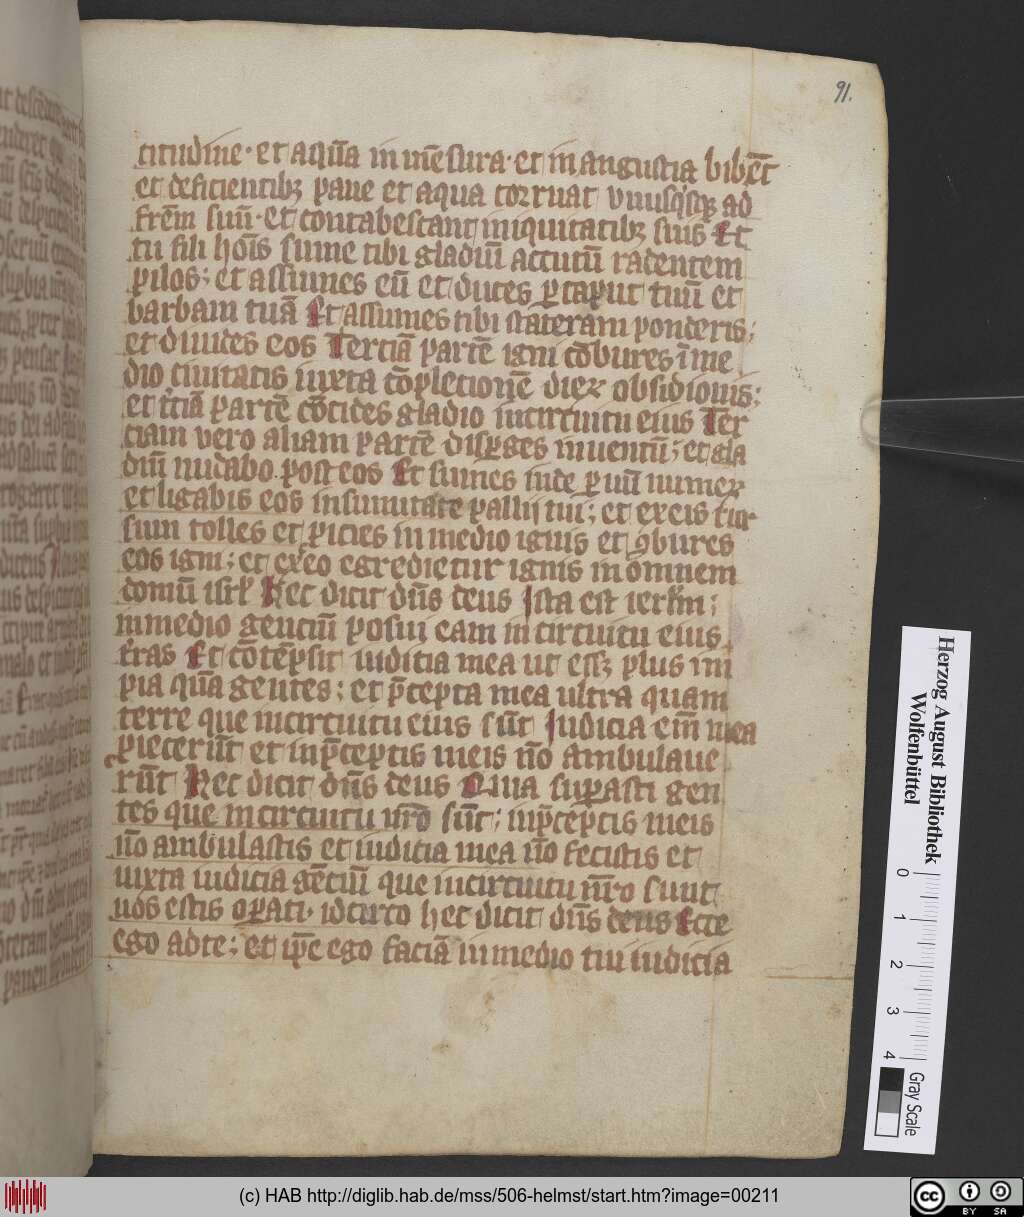 91.
titudine · et aquā in mēsura · et in angustia bibēt
et deficientibꝫ pane et aqua corruat vnusqisqꝫ ad
frēm suū · et contabescant iniquitatibꝫ suis Et
tu fili hoīs sume tibi gladiū accutū radentem
pilos ; et assumes eū et duces ꝑ caput tuū et
barbam tuā Et assumes tibi stateram ponderis ;
et diuides eos Terciā partē igni cōbures ī me
dio ciuitatis iuxta cōpletionē dieꝝ obsidionis ;
et tciā partē cōcides gladio incircuitu eius Ter
ciam vero aliam partē disꝑges inuentū ; et gla
diū nudabo post eos Et sumes inde ꝑuū numeꝝ
et ligabis eos insumitate pallij tui ; et exeis rur
sum tolles et ꝓicies in medio ignis et ꝯbures
eos igni ; et exeo egredietur ignis in omnem
domū isrl Hec dicit dn̄s deus Ista est ierlm̄ ;
inmedio genciū posui eam in circuitu eius
t̄ras Et cōtēpsit iudicia mea ut essꝫ plus im
pia quā gentes ; et p̄cepta mea ultra quam
terre que incircuitu eius sūt Iudicia em̄ mea
ꝓiecerūt et inp̄ceptis meis nō ambulaue
rūt Hec dicit dn̄s deus Quia suꝑasti gen
tes que incircuitu vr̄o sūt ; inp̄ceptis meis
nō ambulastis et iudicia mea nō fecistis et
iuxta iudicia gēciū que incircuitu vr̄o sunt
nōs estis oꝑati · idcirco hec dicit dn̄s deus Ecce
ego adte ; et ip̄e ego faciā inmedio tui iudicia
Herzog August Bibliothek
Wolfenbüttel
0 1 2 3 4
Gray Scale
(c) HAB http://diglib.hab.de/mss/506-helmst/start.htm?image=00211
cc BY SA